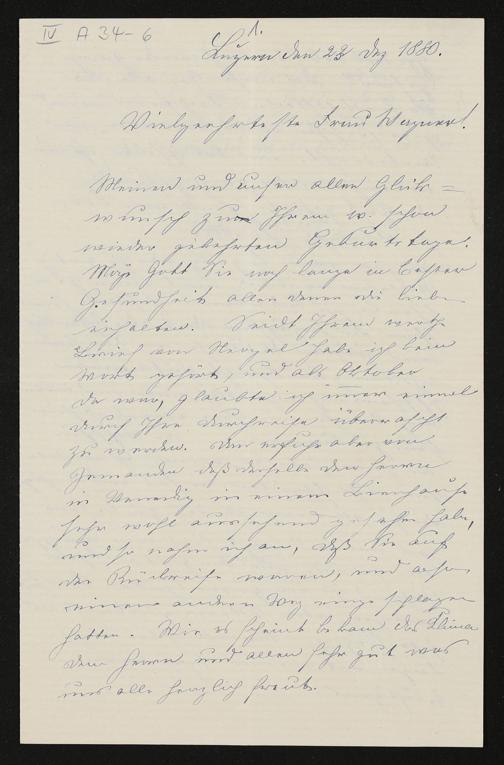 IV A 34-6
1.
Luzern den 23 Dez 1880.
Vielgeehrteste Frau Wagner!
Meinen und unser aller Glük=
wunsch zum Ihrem w. schon
wieder gekehrten Geburtstage.
Möge Gott Sie noch lange in bester
Gesundheit allen denen die Sie lieben
erhalten. Seidt Ihrem werthe
Brief von Neapel habe ich kein
Wort gehört, und als Oktober
da war, glaubte ich immer einmal
durch Ihre Durchreise überrascht
zu werden. Da erfuhr aber von
Jemanden daß derselbe den Herrn
in Venedig in einem Bierhause
sehr wohl aussehend gesehen habe,
und so nahm ich an, daß Sie auf
der Rückreise waren, und
einen andern Weg eingeschlagen
hatten. Wie es scheint bekam das Klima
dem Herrn und allen sehr gut was
uns alle herzlich freut.